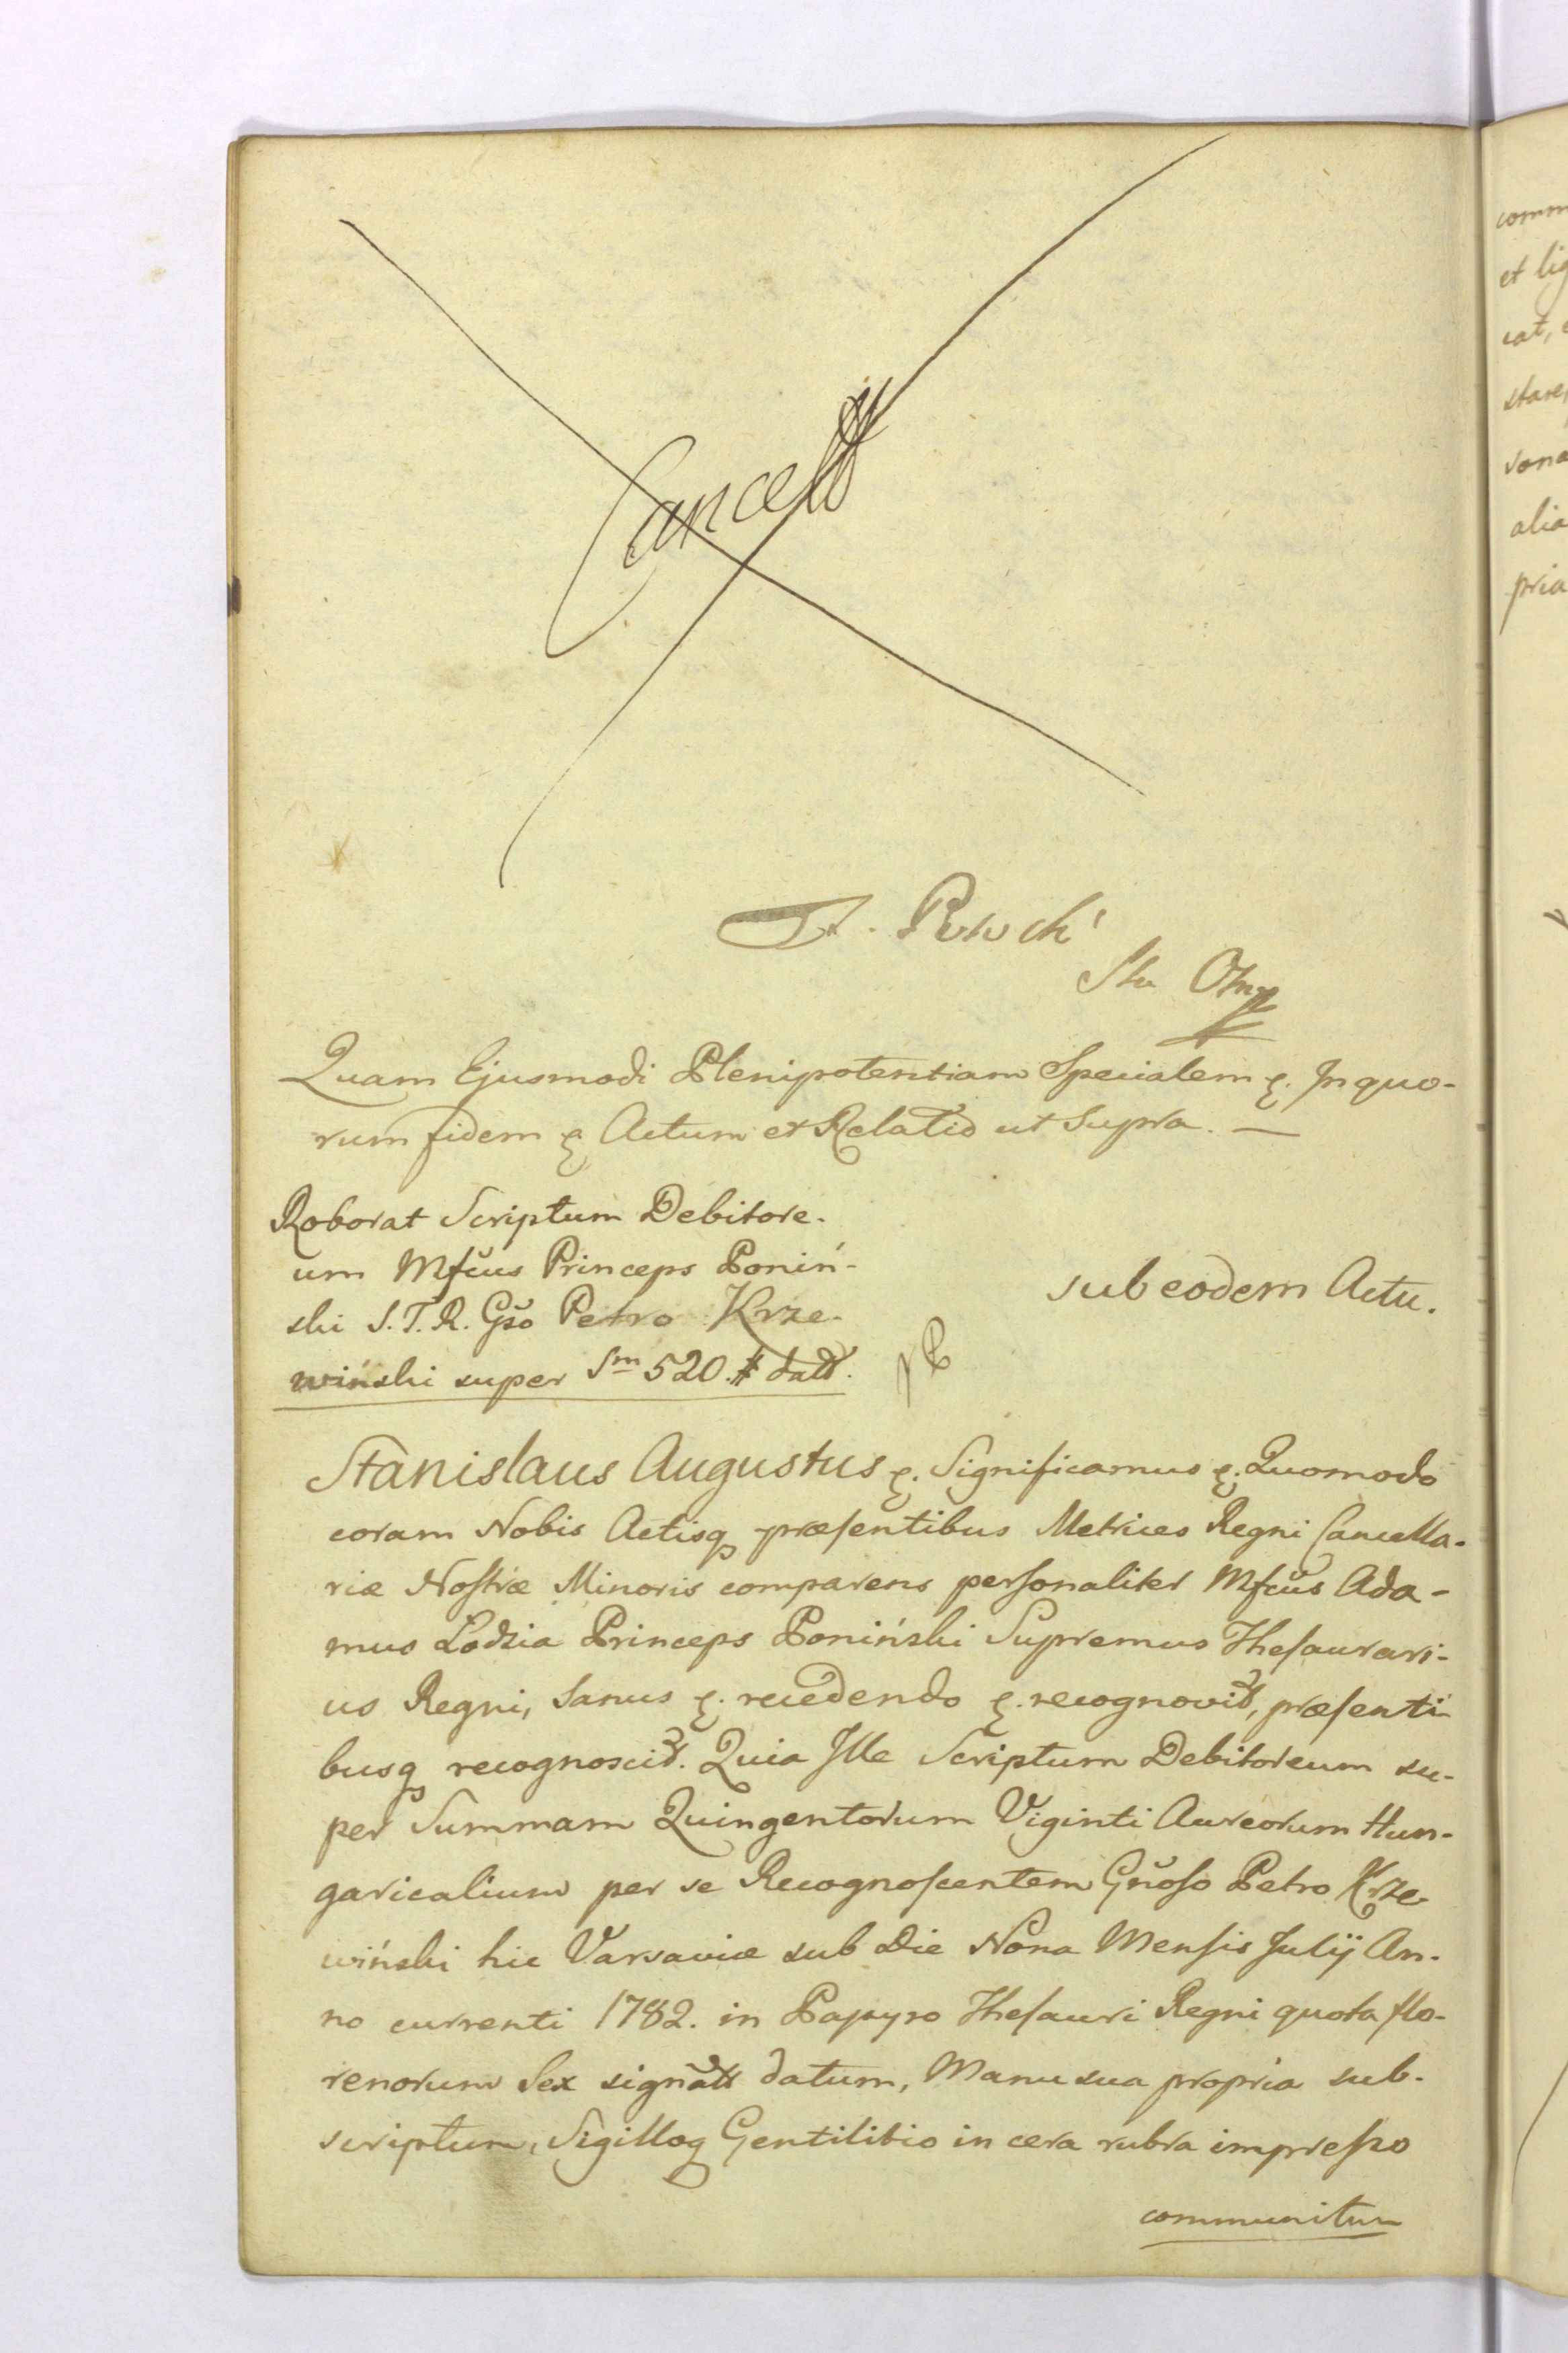 Cancell
Quam Ejusmodi Plenipotentiam Specialem &. In quo-
rum fidem & Actum et Relatio ut Supra. —
Roborat Scriptum Debitore-
um Mfcus Princeps Poniń-
ski S.T.R. Gso Petro Krze-
wiński super Sm 520. # datt.
sub eodem Actu.
Stanislaus Augustus &. Significamus &. Quomodo
coram Nobis Actisq præsentibus Metrices Regni Cancella-
riæ Nostræ Minoris comparens personaliter Mfcus Ada-
mus Łodzia Princeps Poniński Supremus Thesaurari-
us Regni, Sanus &. recedendo &. recognovit, præsenti-
busq recognoscit. Quia Ille Scriptum Debitoreum su-
per Summam Quingentorum Viginti Aureorum Hun-
garicalium per se Recognoscentem Gnoso Petro Krze-
wiński hic Varsaviæ sub Die Nona Mensis Julij An-
no currenti 1782. in Papyro Thesauri Regni quota flo-
renorum Sex signatt datum, Manu sua propria sub-
scriptum, Sigilloq Gentilitio in cera rubra impresso
communitum
comm
et lig
cat,
stare,
sona
alia
pria